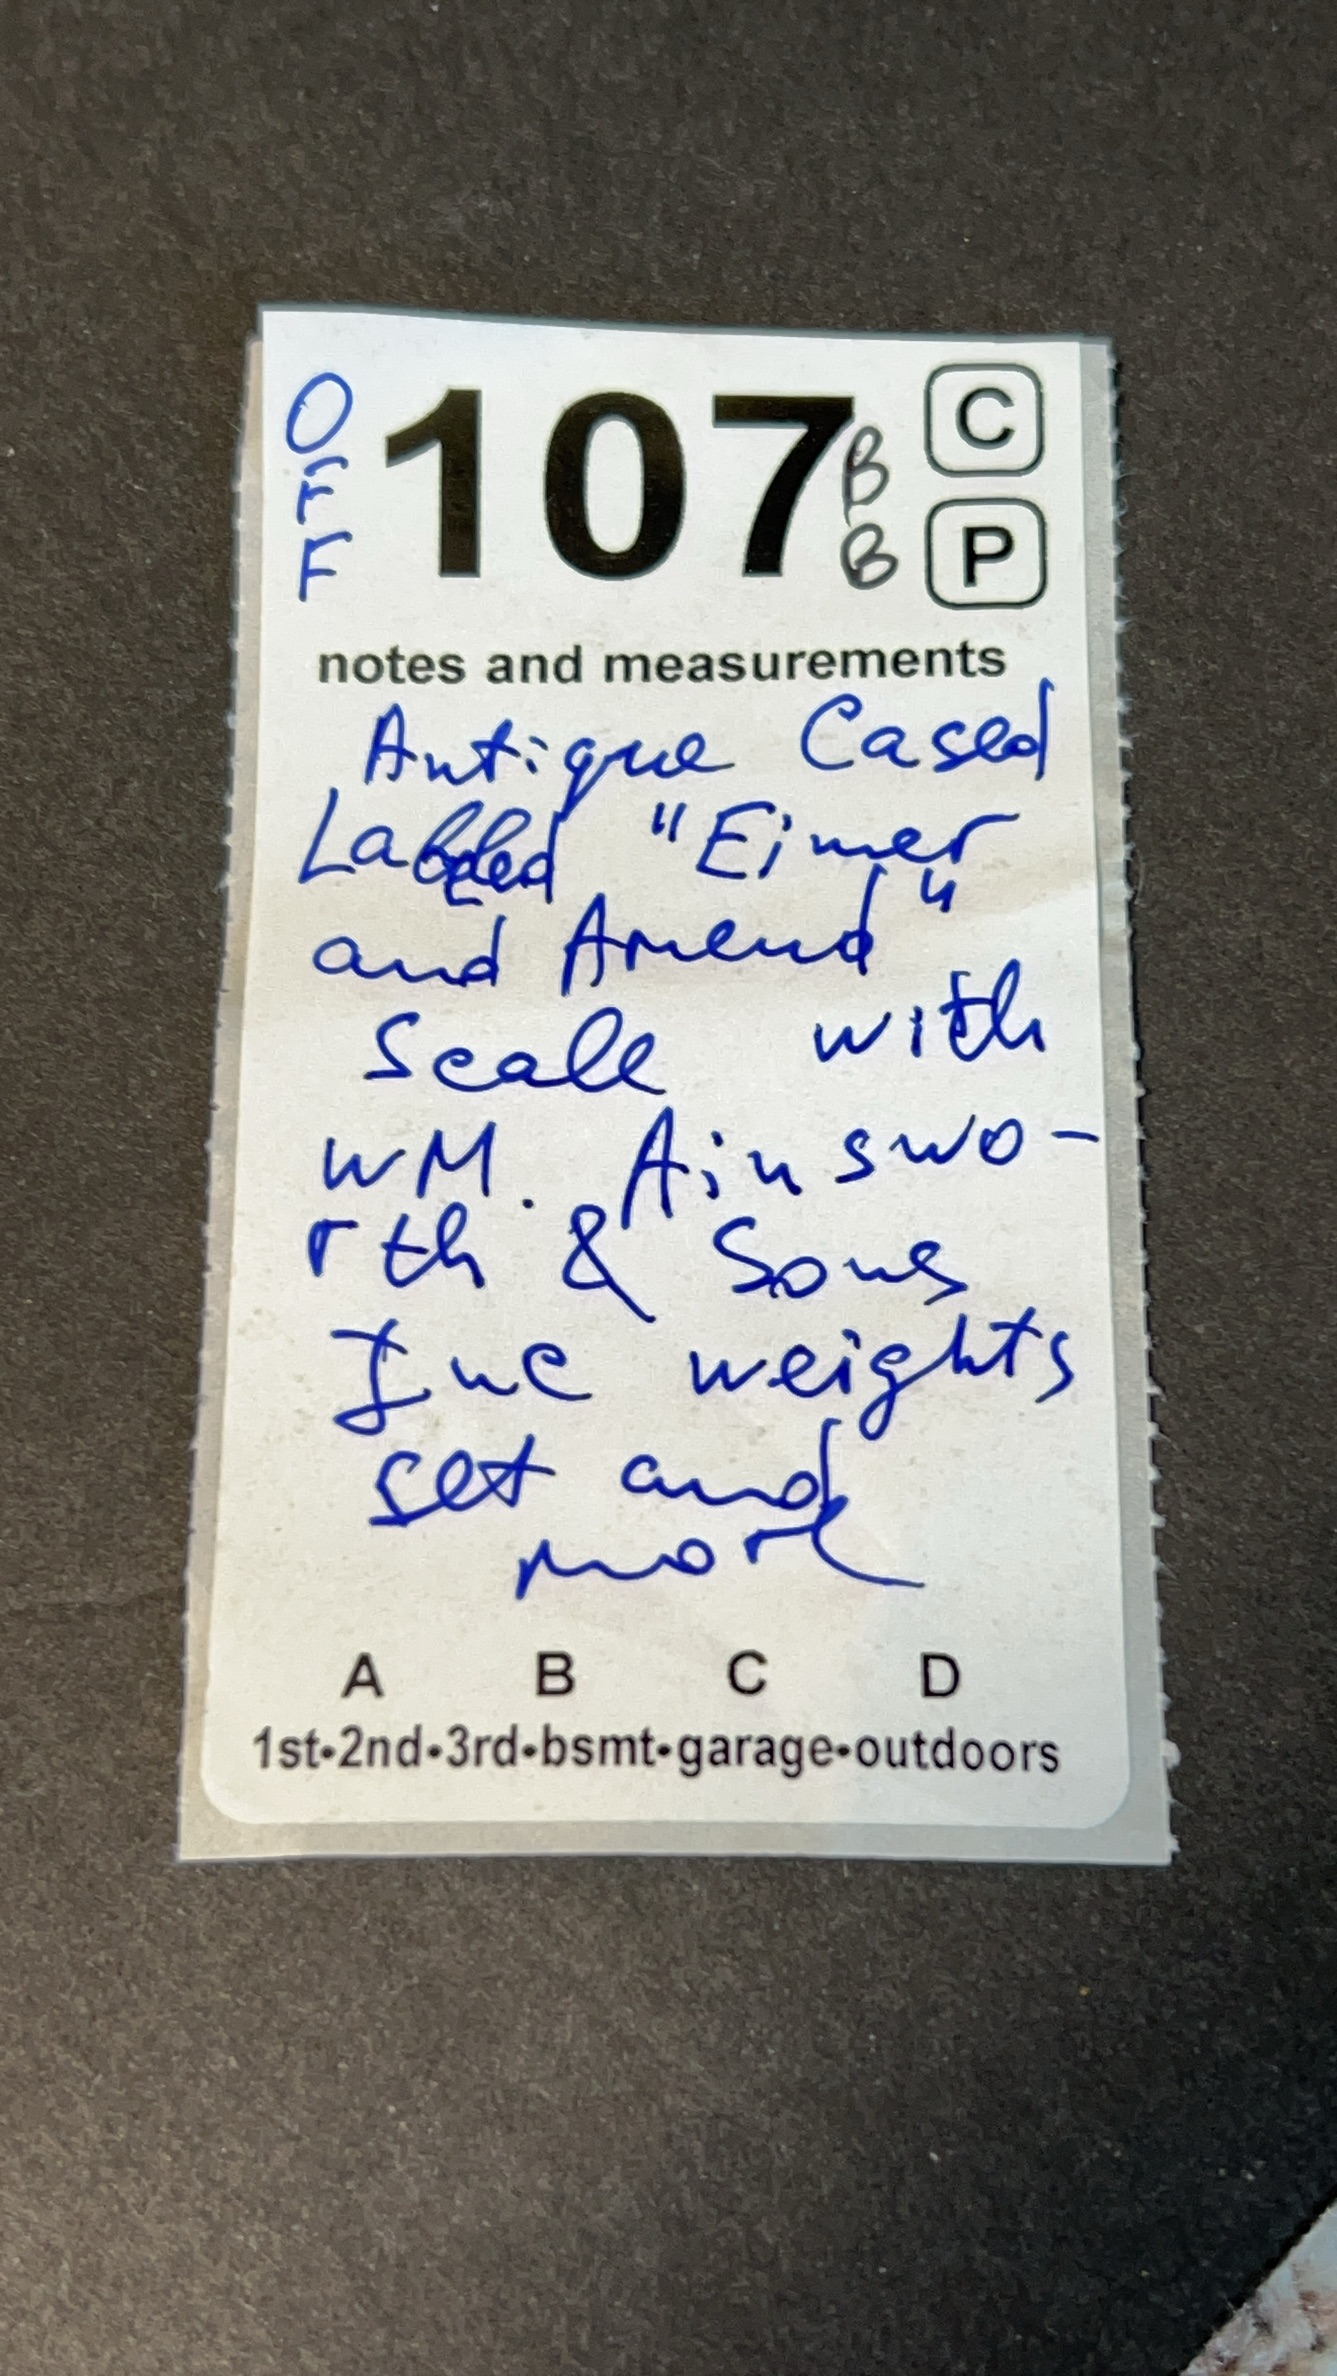 OFF 107 BB C
P
notes and measurements
Antique Cased
Labeled "Eimer
and Amend"
Scale with
WM. Ainswo-
rth & Sons
Inc weights
set and
more
A B C D
1st•2nd•3rd•bsmt•garage•outdoors